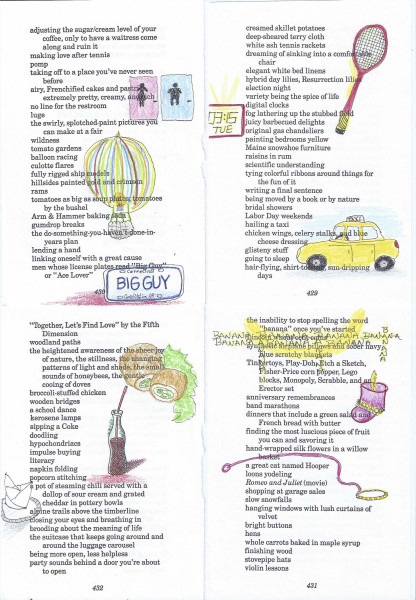 adjusting the sugar/cream level of your
coffee, only to have a waitress come
along and ruin it
making love after tennis
pomp
taking off to a place you've never seen
before
airy, Frenchified cakes and pastries,
extremely pretty, creamy, and rich
no line for the restroom
luge
the swirly, splotched-paint pictures you
can make at a fair
wildness
tomato gardens
balloon racing
culotte flares
fully rigged ship models
hillsides painted gold and crimson
rams
tomatoes as big as soup plates, tomatoes
by the bushel
Arm & Hammer baking soda
gumdrop breaks
the do-something-you-haven't-done-in-
years plan
lending a hand
linking oneself with a great cause
men whose license plates read "Big Guy"
or "Ace Lover"
430
BIG GUY
creamed skillet potatoes
deep-sheared terry cloth
white ash tennis rackets
dreaming of sinking into a comfortable
chair
elegant white bed linens
hybrid day lilies, Resurrection lilies
election night
variety being the spice of life
digital clocks
fog lathering up the stubbled field
juicy barbecued delights
original gas chandeliers
painting bedrooms yellow
Maine snowshoe furniture
raisins in rum
scientific understanding
tying colorful ribbons around things for
the fun of it
writing a final sentence
being moved by a book by nature
bridal showers
Labor Day weekends
hailing a taxi
chicken wings, celery stalks, and blue
cheese dressing
glisteny stuff
going to sleep
hair-flying, shirt-tossing, sun-dripping
days
429
03:15
TUE
TAXI
"Together, Let's Find Love" by the Fifth
Dimension
woodland paths
the heightened awareness of the sheer joy
of nature, the stillness, the changing
patterns of light and shade, the small
sounds of honeybees, the gentle
cooing of doves
broccoli-stuffed chicken
wooden bridges
a school dance
kerosene lamps
sipping a Coke
doodling
hypochondriacs
impulse buying
literacy
napkin folding
popcorn stitching
a pot of steaming chili served with a
dollop of sour cream and grated
cheddar in pottery bowls
alpine trails above the timberline
closing your eyes and breathing in
brooding about the meaning of life
the suitcase that keeps going around and
around the luggage carousel
being more open, less helpless
party sounds behind a door you're about
to open
432
the inability to stop spelling the word
"banana" once you've started
BANANA BANANA BANANA BANANA
BANANA BANANA BANANA
BANANA
airplane pillows and sheer navy
blue scratchy blankets
Tinkertoys, Play-Doh, Etch a Sketch,
Fisher-Price corn popper, Lego
blocks, Monopoly, Scrabble, and an
Erector set
anniversary remembrances
band marathons
dinners that include a green salad and
French bread with butter
finding the most luscious piece of fruit
you can and savoring it
hand-wrapped silk flowers in a willow
basket
a great cat named Hooper
loons yodeling
Romeo and Juliet (movie)
shopping at garage sales
slow snowfalls
hanging windows with lush curtains of
velvet
bright buttons
hens
whole carrots baked in maple syrup
finishing wood
stovepipe hats
violin lessons
431